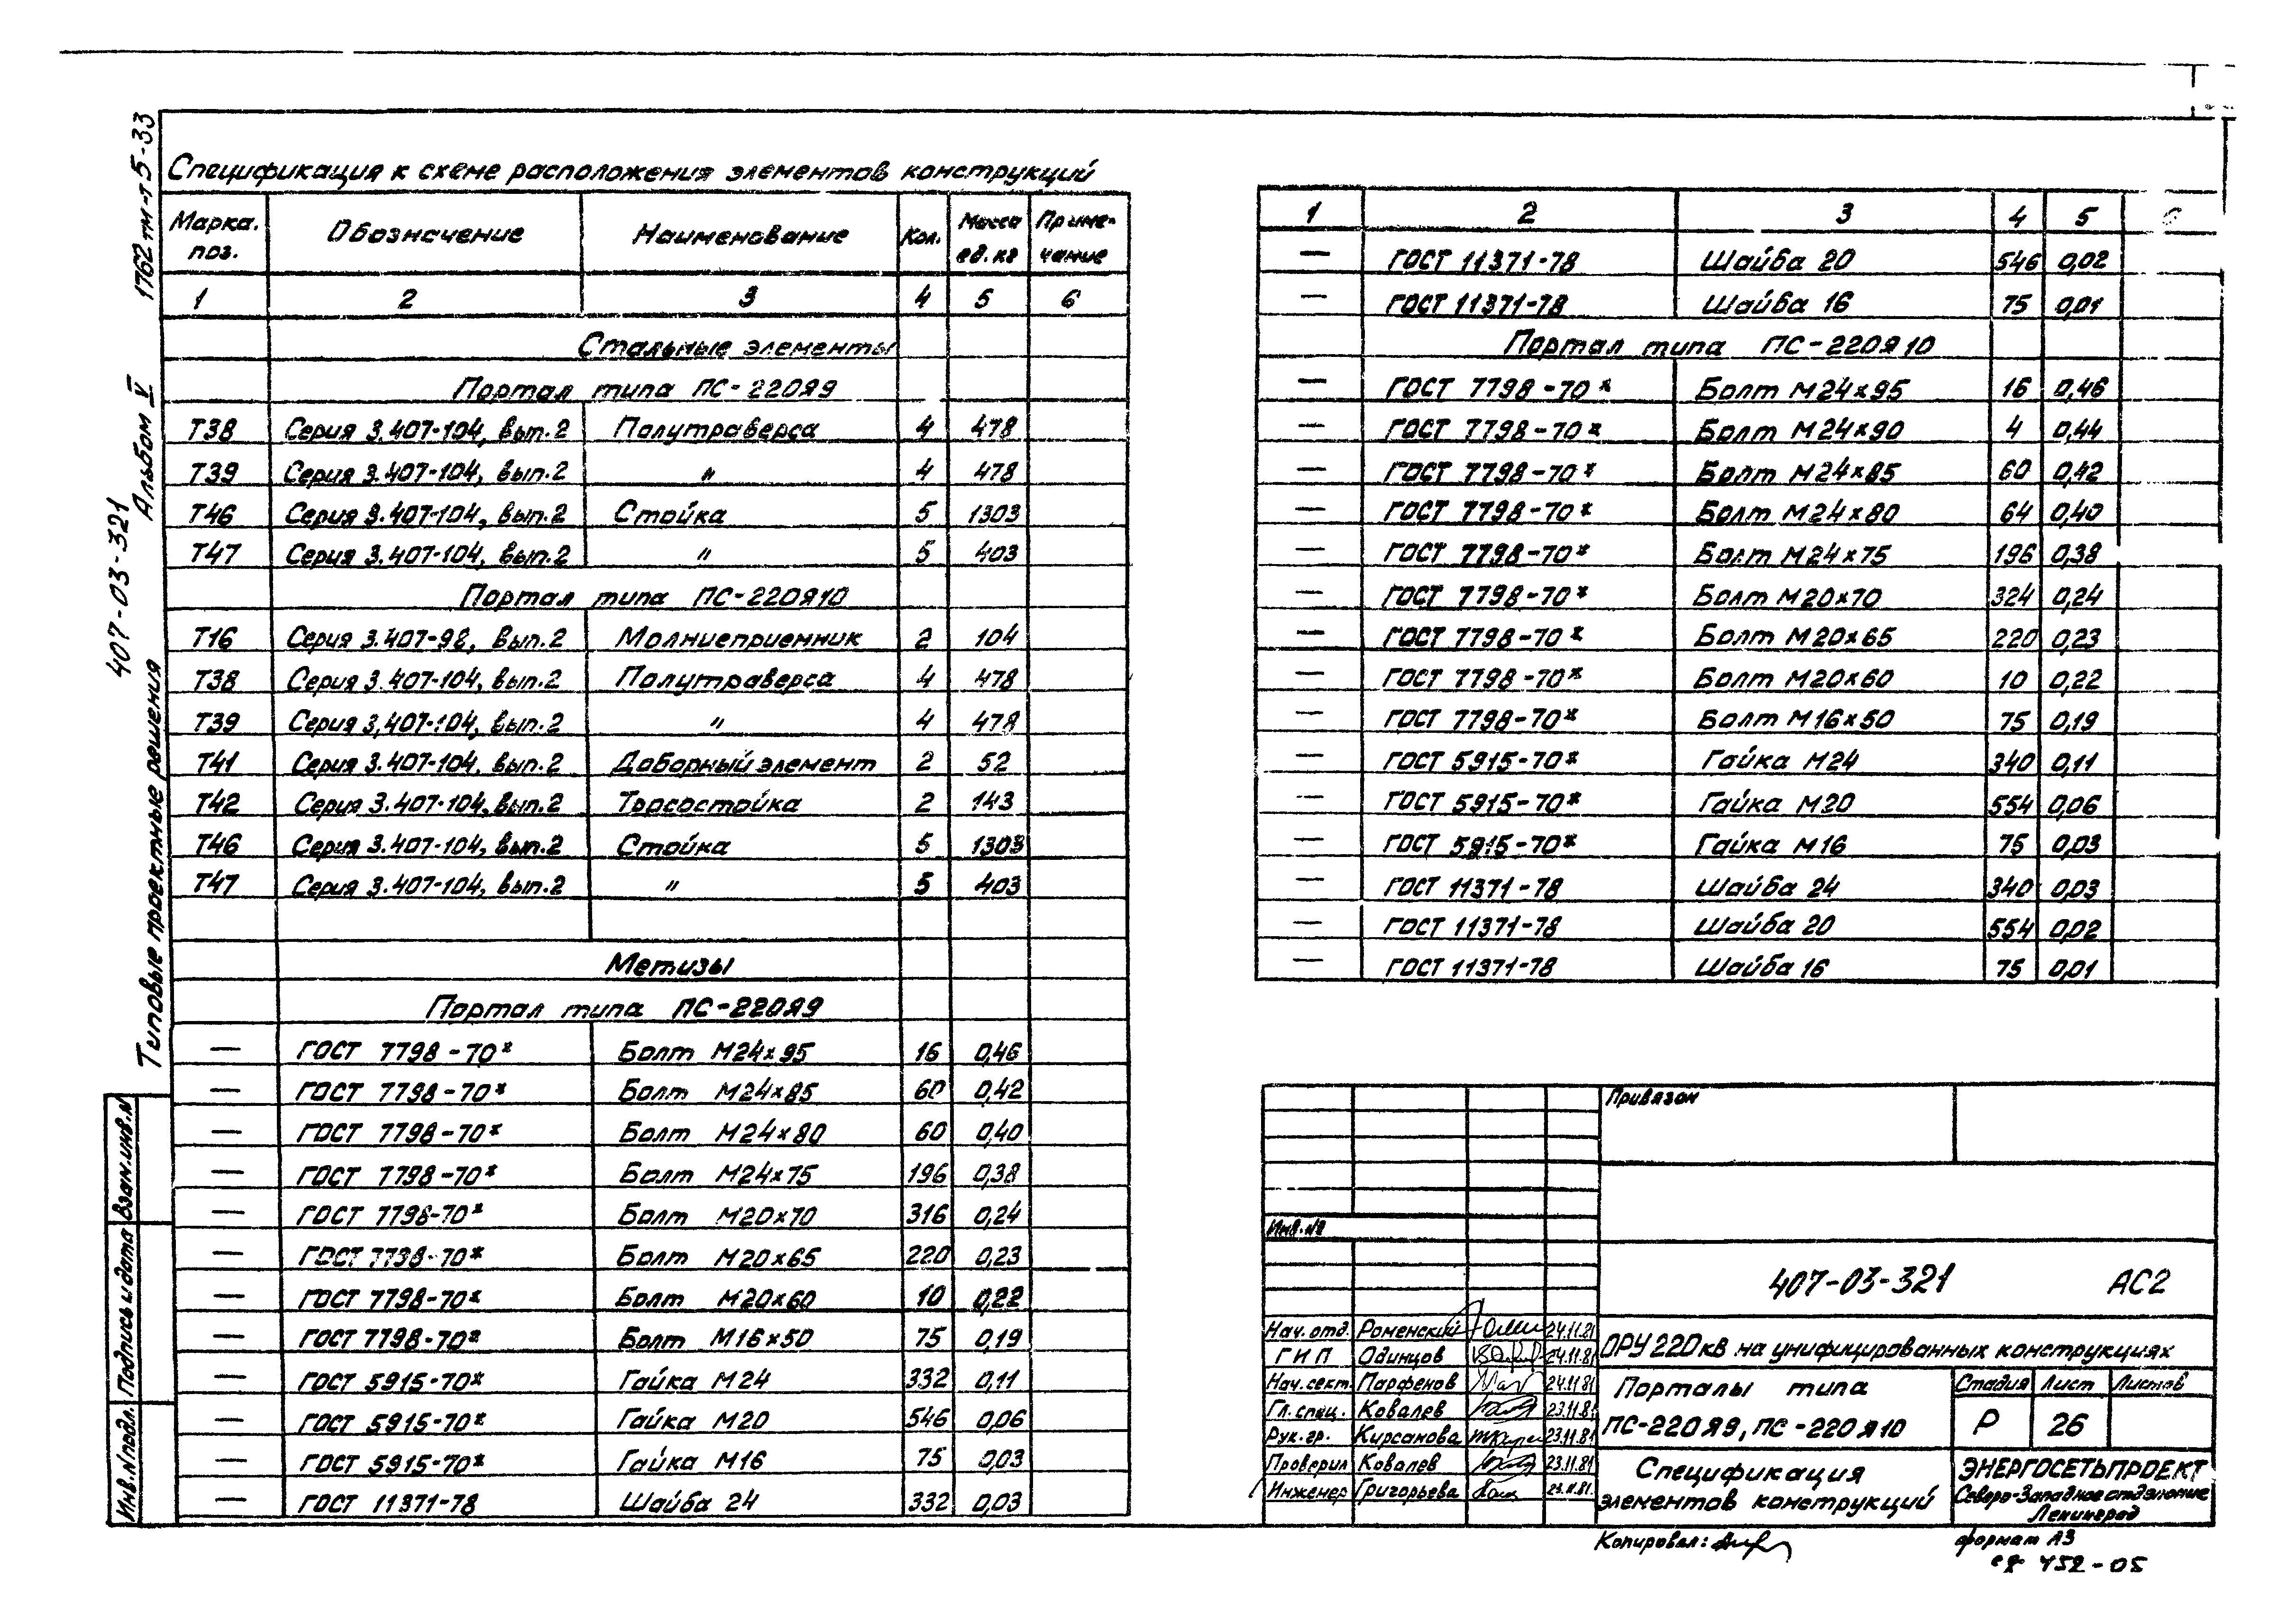 1762 тм-т5-33
Альбом V
407-03-321
Типовые проектные решения
Взам.инв.N
Подпись и дата
Инв.N подл.
Спецификация к схеме расположения элементов конструкций
Марка. поз. Обозначение Наименование Кол. Масса ед. кг Приме-чание
1 2 3 4 5 6
Стальные элементы
Портал типа ПС-220Я9
Т38 Серия 3.407-104, вып.2 Полутраверса 4 478
Т39 Серия 3.407-104, вып.2 " 4 478
Т46 Серия 3.407-104, вып.2 Стойка 5 1303
Т47 Серия 3.407-104, вып.2 " 5 403
Портал типа ПС-220Я10
Т16 Серия 3.407-98, вып.2 Молниеприемник 2 104
Т38 Серия 3.407-104, вып.2 Полутраверса 4 478
Т39 Серия 3,407-104, вып.2 " 4 478
Т41 Серия 3.407-104, вып.2 Доборный элемент 2 52
Т42 Серия 3.407-104, вып.2 Тросостойка 2 143
Т46 Серия 3.407-104, вып.2 Стойка 5 1303
Т47 Серия 3.407-104, вып.2 " 5 403
Метизы
Портал типа ПС-220Я9
— ГОСТ 7798-70* Болт М24×95 16 0,46
— ГОСТ 7798-70* Болт М24×85 60 0,42
— ГОСТ 7798-70* Болт М24×80 60 0,40
— ГОСТ 7798-70* Болт М24×75 196 0,38
— ГОСТ 7798-70* Болт М20×70 316 0,24
— ГОСТ 7798-70* Болт М20×65 220 0,23
— ГОСТ 7798-70* Болт М20×60 10 0,22
— ГОСТ 7798-70* Болт М16×50 75 0,19
— ГОСТ 5915-70* Гайка М24 332 0,11
— ГОСТ 5915-70* Гайка М20 546 0,06
— ГОСТ 5915-70* Гайка М16 75 0,03
— ГОСТ 11371-78 Шайба 24 332 0,03
1 2 3 4 5 6
— ГОСТ 11371-78 Шайба 20 546 0,02
— ГОСТ 11371-78 Шайба 16 75 0,01
Портал типа ПС-220Я10
— ГОСТ 7798-70* Болт М24×95 16 0,46
— ГОСТ 7798-70* Болт М24×90 4 0,44
— ГОСТ 7798-70* Болт М24×85 60 0,42
— ГОСТ 7798-70* Болт М24×80 64 0,40
— ГОСТ 7798-70* Болт М24×75 196 0,38
— ГОСТ 7798-70* Болт М20×70 324 0,24
— ГОСТ 7798-70* Болт М20×65 220 0,23
— ГОСТ 7798-70* Болт М20×60 10 0,22
— ГОСТ 7798-70* Болт М16×50 75 0,19
— ГОСТ 5915-70* Гайка М24 340 0,11
— ГОСТ 5915-70* Гайка М20 554 0,06
— ГОСТ 5915-70* Гайка М16 75 0,03
— ГОСТ 11371-78 Шайба 24 340 0,03
— ГОСТ 11371-78 Шайба 20 554 0,02
— ГОСТ 11371-78 Шайба 16 75 0,01
Привязан
Инв.№
407-03-321 АС2
Нач. отд. Роменский 24.11.81
ГИП Одинцов 24.11.81
Нач. сект. Парфенов 24.11.81
Гл. спец. Ковалев 23.11.81
Рук. гр. Кирсанова 23.11.81
Проверил Ковалев 23.11.81
Инженер Григорьева 23.11.81.
ОРУ 220 кВ на унифицированных конструкциях
Порталы типа
ПС-220Я9, ПС-220Я10
Стадия Лист Листов
Р 26
Спецификация
элементов конструкций
ЭНЕРГОСЕТЬПРОЕКТ
Северо-Западное отделение
Ленинград
Копировал:
формат А3
452-05